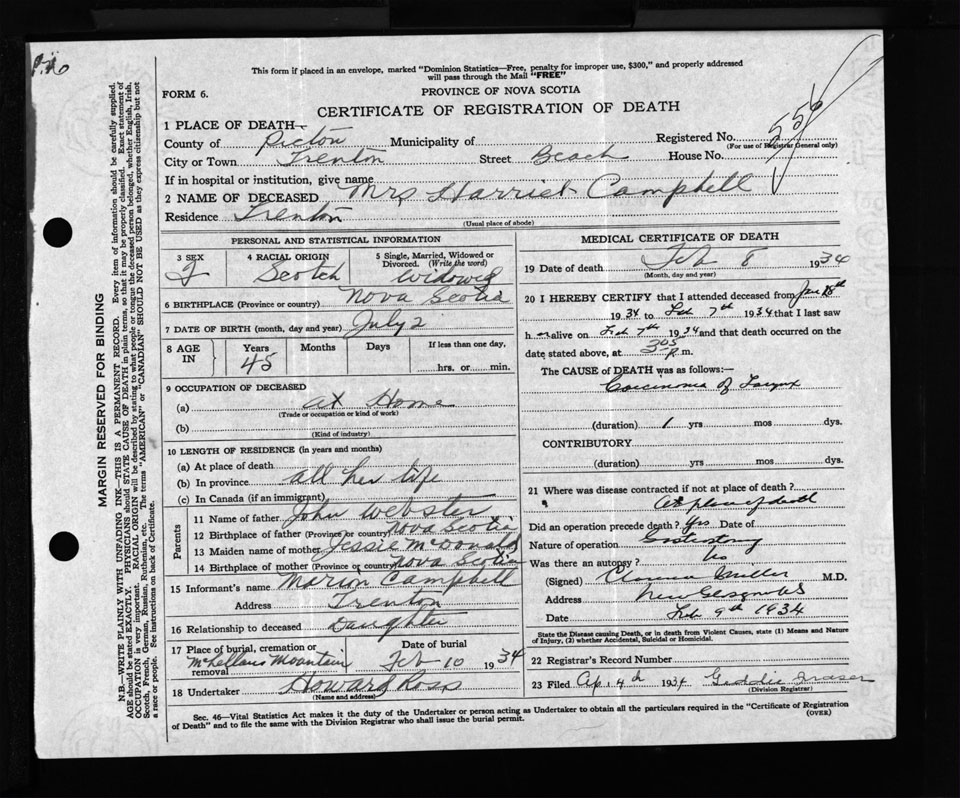 This form if placed in an envelope, marked "Dominion Statistics—Free, penalty for improper use, $300," and properly addressed
will pass through the Mail "FREE"
FORM 6.
PROVINCE OF NOVA SCOTIA
CERTIFICATE OF REGISTRATION OF DEATH
556
1 PLACE OF DEATH—
County of Pictou Municipality of Registered No.
(For use of Registrar General only)
City or Town Trenton Street Beach House No.
If in hospital or institution, give name
2 NAME OF DECEASED Mrs Harriet Campbell
Residence Trenton
(Usual place of abode)
PERSONAL AND STATISTICAL INFORMATION
3 SEX 4 RACIAL ORIGIN 5 Single, Married, Widowed or Divorced. (Write the word)
F Scotch Widowed
6 BIRTHPLACE (Province or country) Nova Scotia
7 DATE OF BIRTH (month, day and year) July 2
8 AGE IN Years Months Days If less than one day,
45 hrs. or min.
9 OCCUPATION OF DECEASED
(a) at Home
(Trade or occupation or kind of work)
(b)
(Kind of industry)
10 LENGTH OF RESIDENCE (in years and months)
(a) At place of death
(b) In province all her life
(c) In Canada (if an immigrant)
Parents
11 Name of father John Webster
12 Birthplace of father (Province or country) Nova Scotia
13 Maiden name of mother Jessie McDonald
14 Birthplace of mother (Province or country) Nova Scotia
15 Informant's name Marion Campbell
Address Trenton
16 Relationship to deceased Daughter
17 Place of burial, cremation or removal Date of burial
McLellans Mountain Feb 10 1934
18 Undertaker Howard Ross
(Name and address)
MEDICAL CERTIFICATE OF DEATH
19 Date of death Feb 8 1934
(Month, day and year)
20 I HEREBY CERTIFY that I attended deceased from Jan
1934 to Feb 7th 1934 that I last saw
h er alive on Feb 7th 1934 and that death occurred on
date stated above, at 305 P. m.
The CAUSE of DEATH was as follows:—
Carcinoma of Larynx
(duration) 1 yrs mos dys.
CONTRIBUTORY
(duration) yrs mos dys.
21 Where was disease contracted if not at place of death?
At place of death
Did an operation precede death? Yes Date of
Nature of operation
Was there an autopsy? No
(Signed) Clarence Miller M.D.
Address New Glasgow N.S
Date Feb 9th 1934
State the Disease causing Death, or in death from Violent Causes, state (1) Means and Nature
of Injury, (2) whether Accidental, Suicidal or Homicidal.
22 Registrar's Record Number
23 Filed Ap. 4th 1934 Geddie Fraser
(Division Registrar)
Sec. 46—Vital Statistics Act makes it the duty of the Undertaker or person acting as Undertaker to obtain all the particulars required in the "Certificate of Registration
of Death" and to file the same with the Division Registrar who shall issue the burial permit.
(OVER)
MARGIN RESERVED FOR BINDING
N.B.—WRITE PLAINLY WITH UNFADING INK—THIS IS A PERMANENT RECORD. Every item of information should be carefully supplied.
AGE should be stated EXACTLY. PHYSICIANS should STATE CAUSE OF DEATH in plain terms, so that it may be properly classified. Exact statement of
OCCUPATION is very important. RACIAL ORIGIN will be described by stating to what people or tongue the deceased person belonged, whether English, Irish,
Scotch, French, German, Russian, Ruthenian, etc. The terms "AMERICAN" or "CANADIAN" SHOULD NOT BE USED as they express citizenship but not
a race or people. See instructions on back of Certificate.